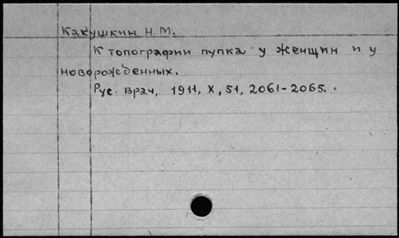 Какушкин Н.М.
К топографии пупка у женщин и у
новорожденных.
Рус. врач, 1911, X, 51, 2061-2065.